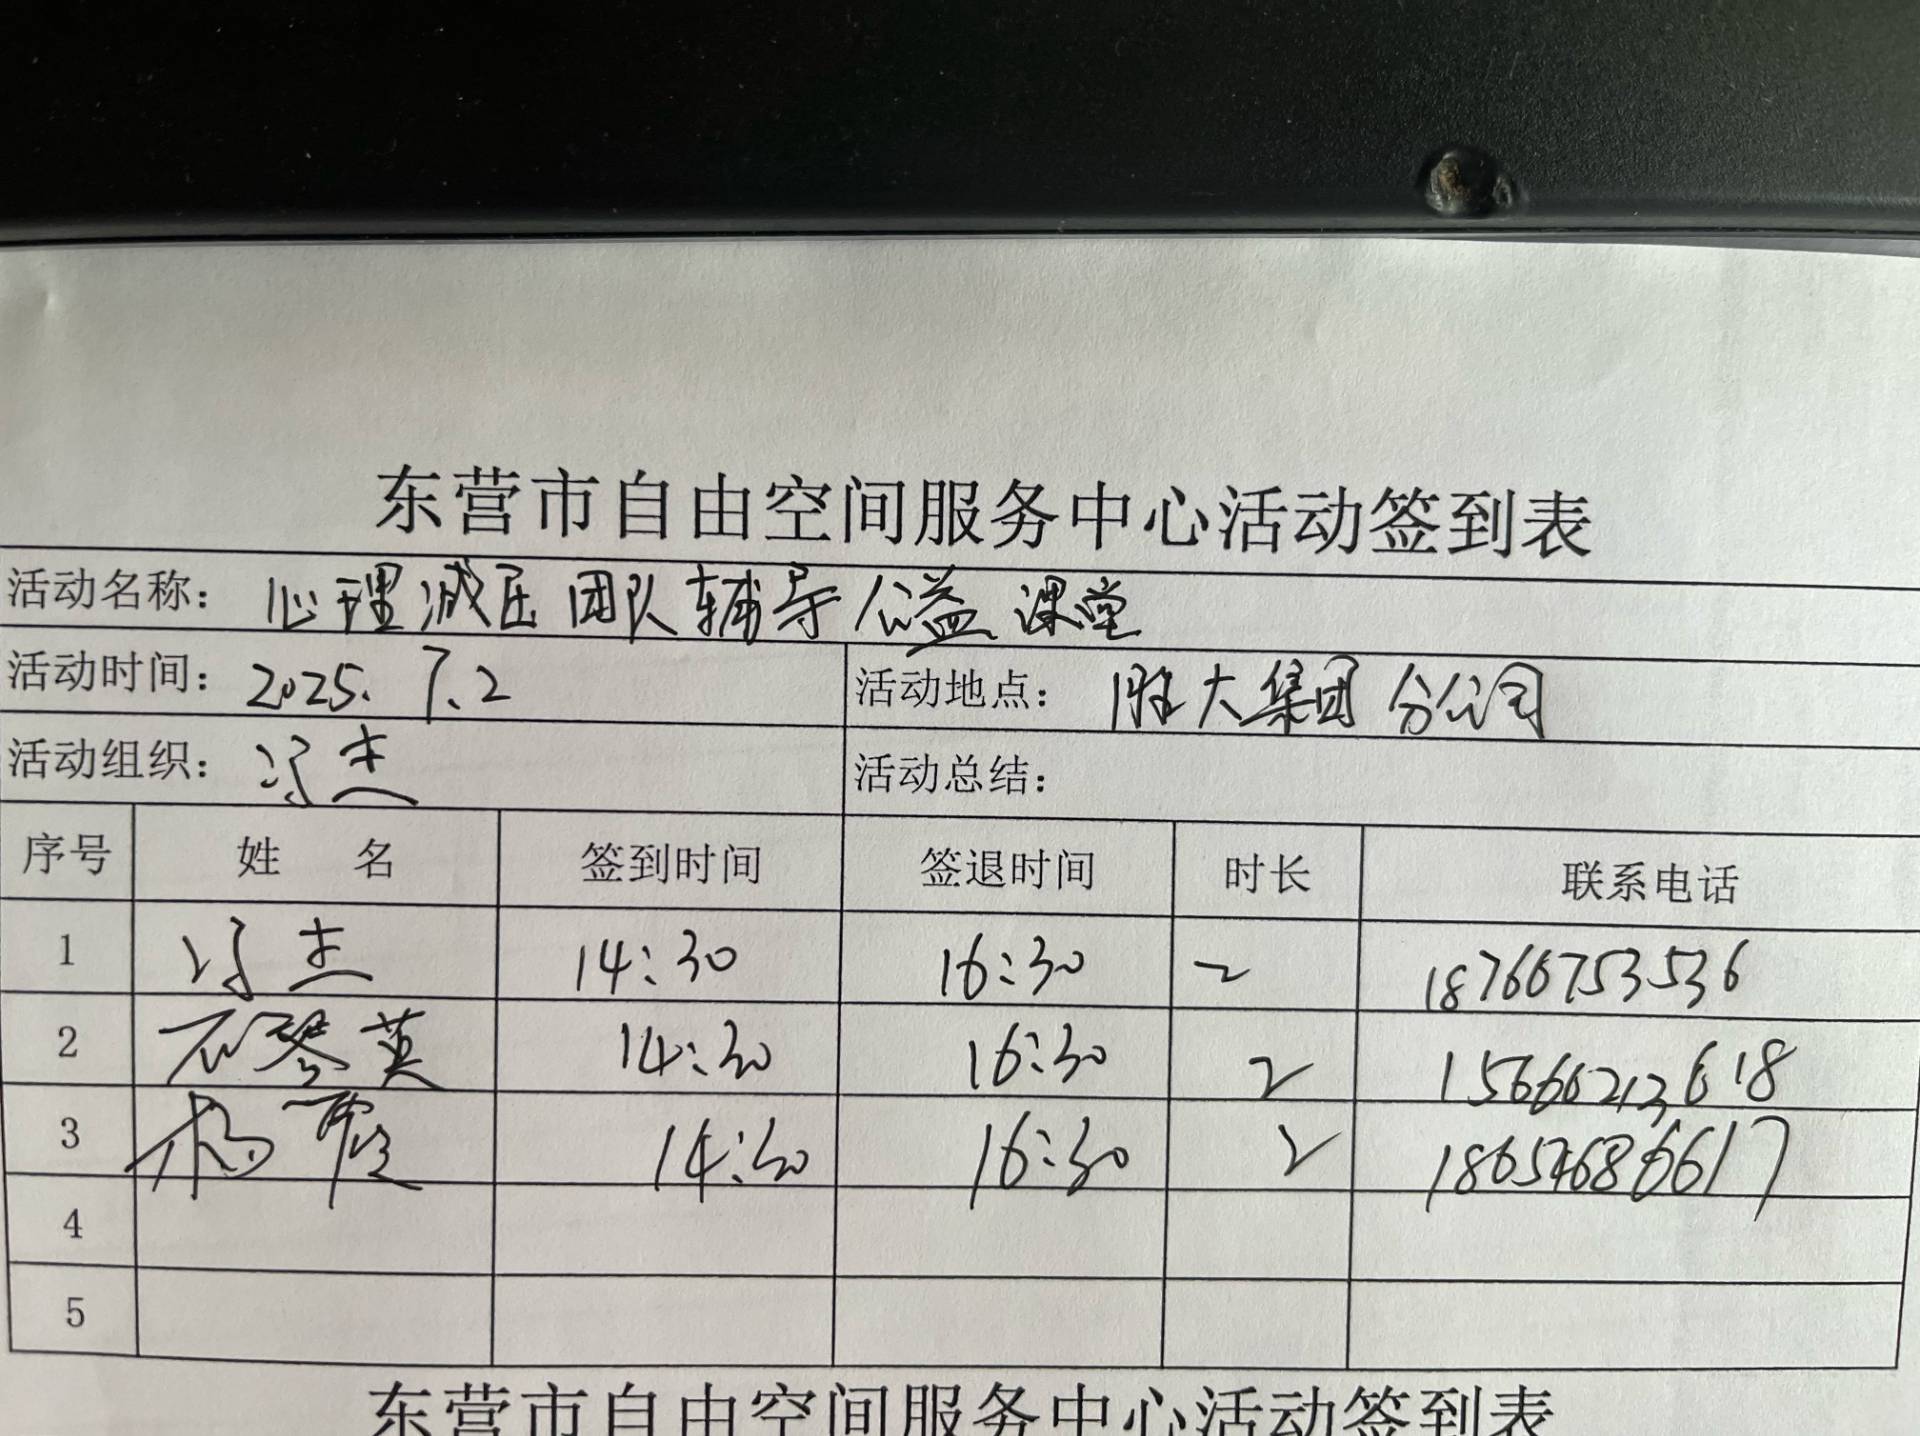 东营市自由空间服务中心活动签到表
活动名称： 心理减压团队辅导公益课堂
活动时间： 2025.7.2 活动地点： 胜大集团分公司
活动组织： 冯杰 活动总结：
序号 姓 名 签到时间 签退时间 时长 联系电话
1 冯杰 14:30 16:30 2 18766753536
2 石琴英 14:30 16:30 2 15666213618
3 杨霞 14:30 16:30 2 18654686617
4
5
东营市自由空间服务中心活动签到表